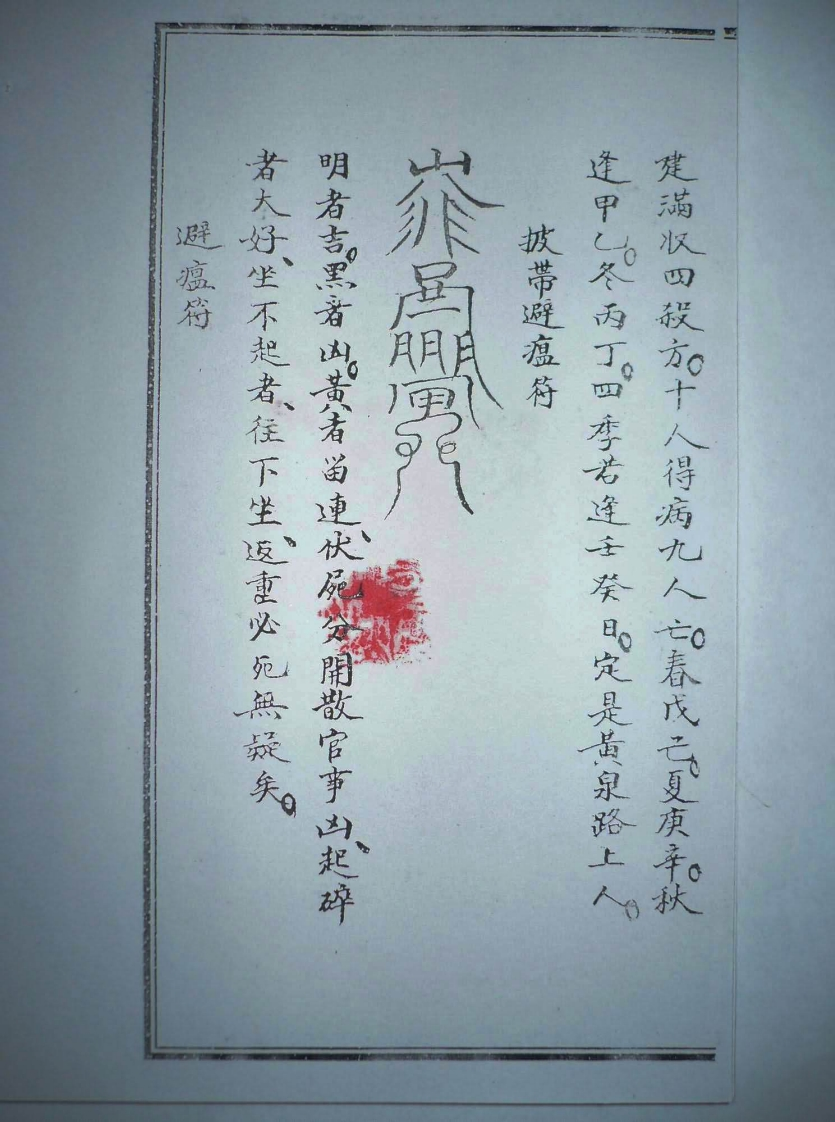 建滿收四殺方。十人得病九人亡。春戊己。夏庚辛。秋
逢甲乙。冬丙丁。四季若逢壬癸日。定是黃泉路上人。
披帶避瘟符
明者吉。黑者凶。黃者畄連、伏屍分開散官事凶、起碎
者大好、坐不起者、往下坐、返重必死無疑矣。
避瘟符